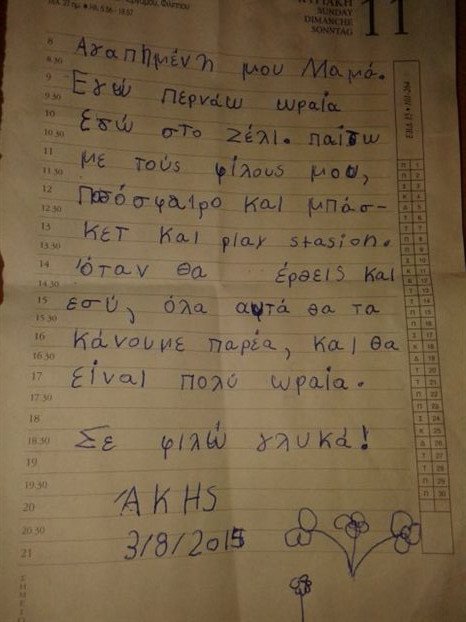 ΚΥΡΙΑΚΗ
SUNDAY
DIMANCHE
SONNTAG
11
Αγαπημένη μου Μαμά.
Εγώ περνάω ωραία
εδώ στο Ζέλι. παίζω
με τούς φίλους μου,
Ποδόσφαιρο και μπάσ-
κετ και play stasion.
όταν θα έρθεις και
εσύ, όλα αυτά θα τα
κάνουμε παρέα, και θα
είναι πολύ ωραία.
Σε φιλώ γλυκά!
ΆΚΗS
3/8/2015
8
8.30
9
9.30
10
10.30
11
11.30
12
12.30
13
13.30
14
14.30
15
15.30
16
16.30
17
17.30
18
18.30
19
19.30
20
20.30
21